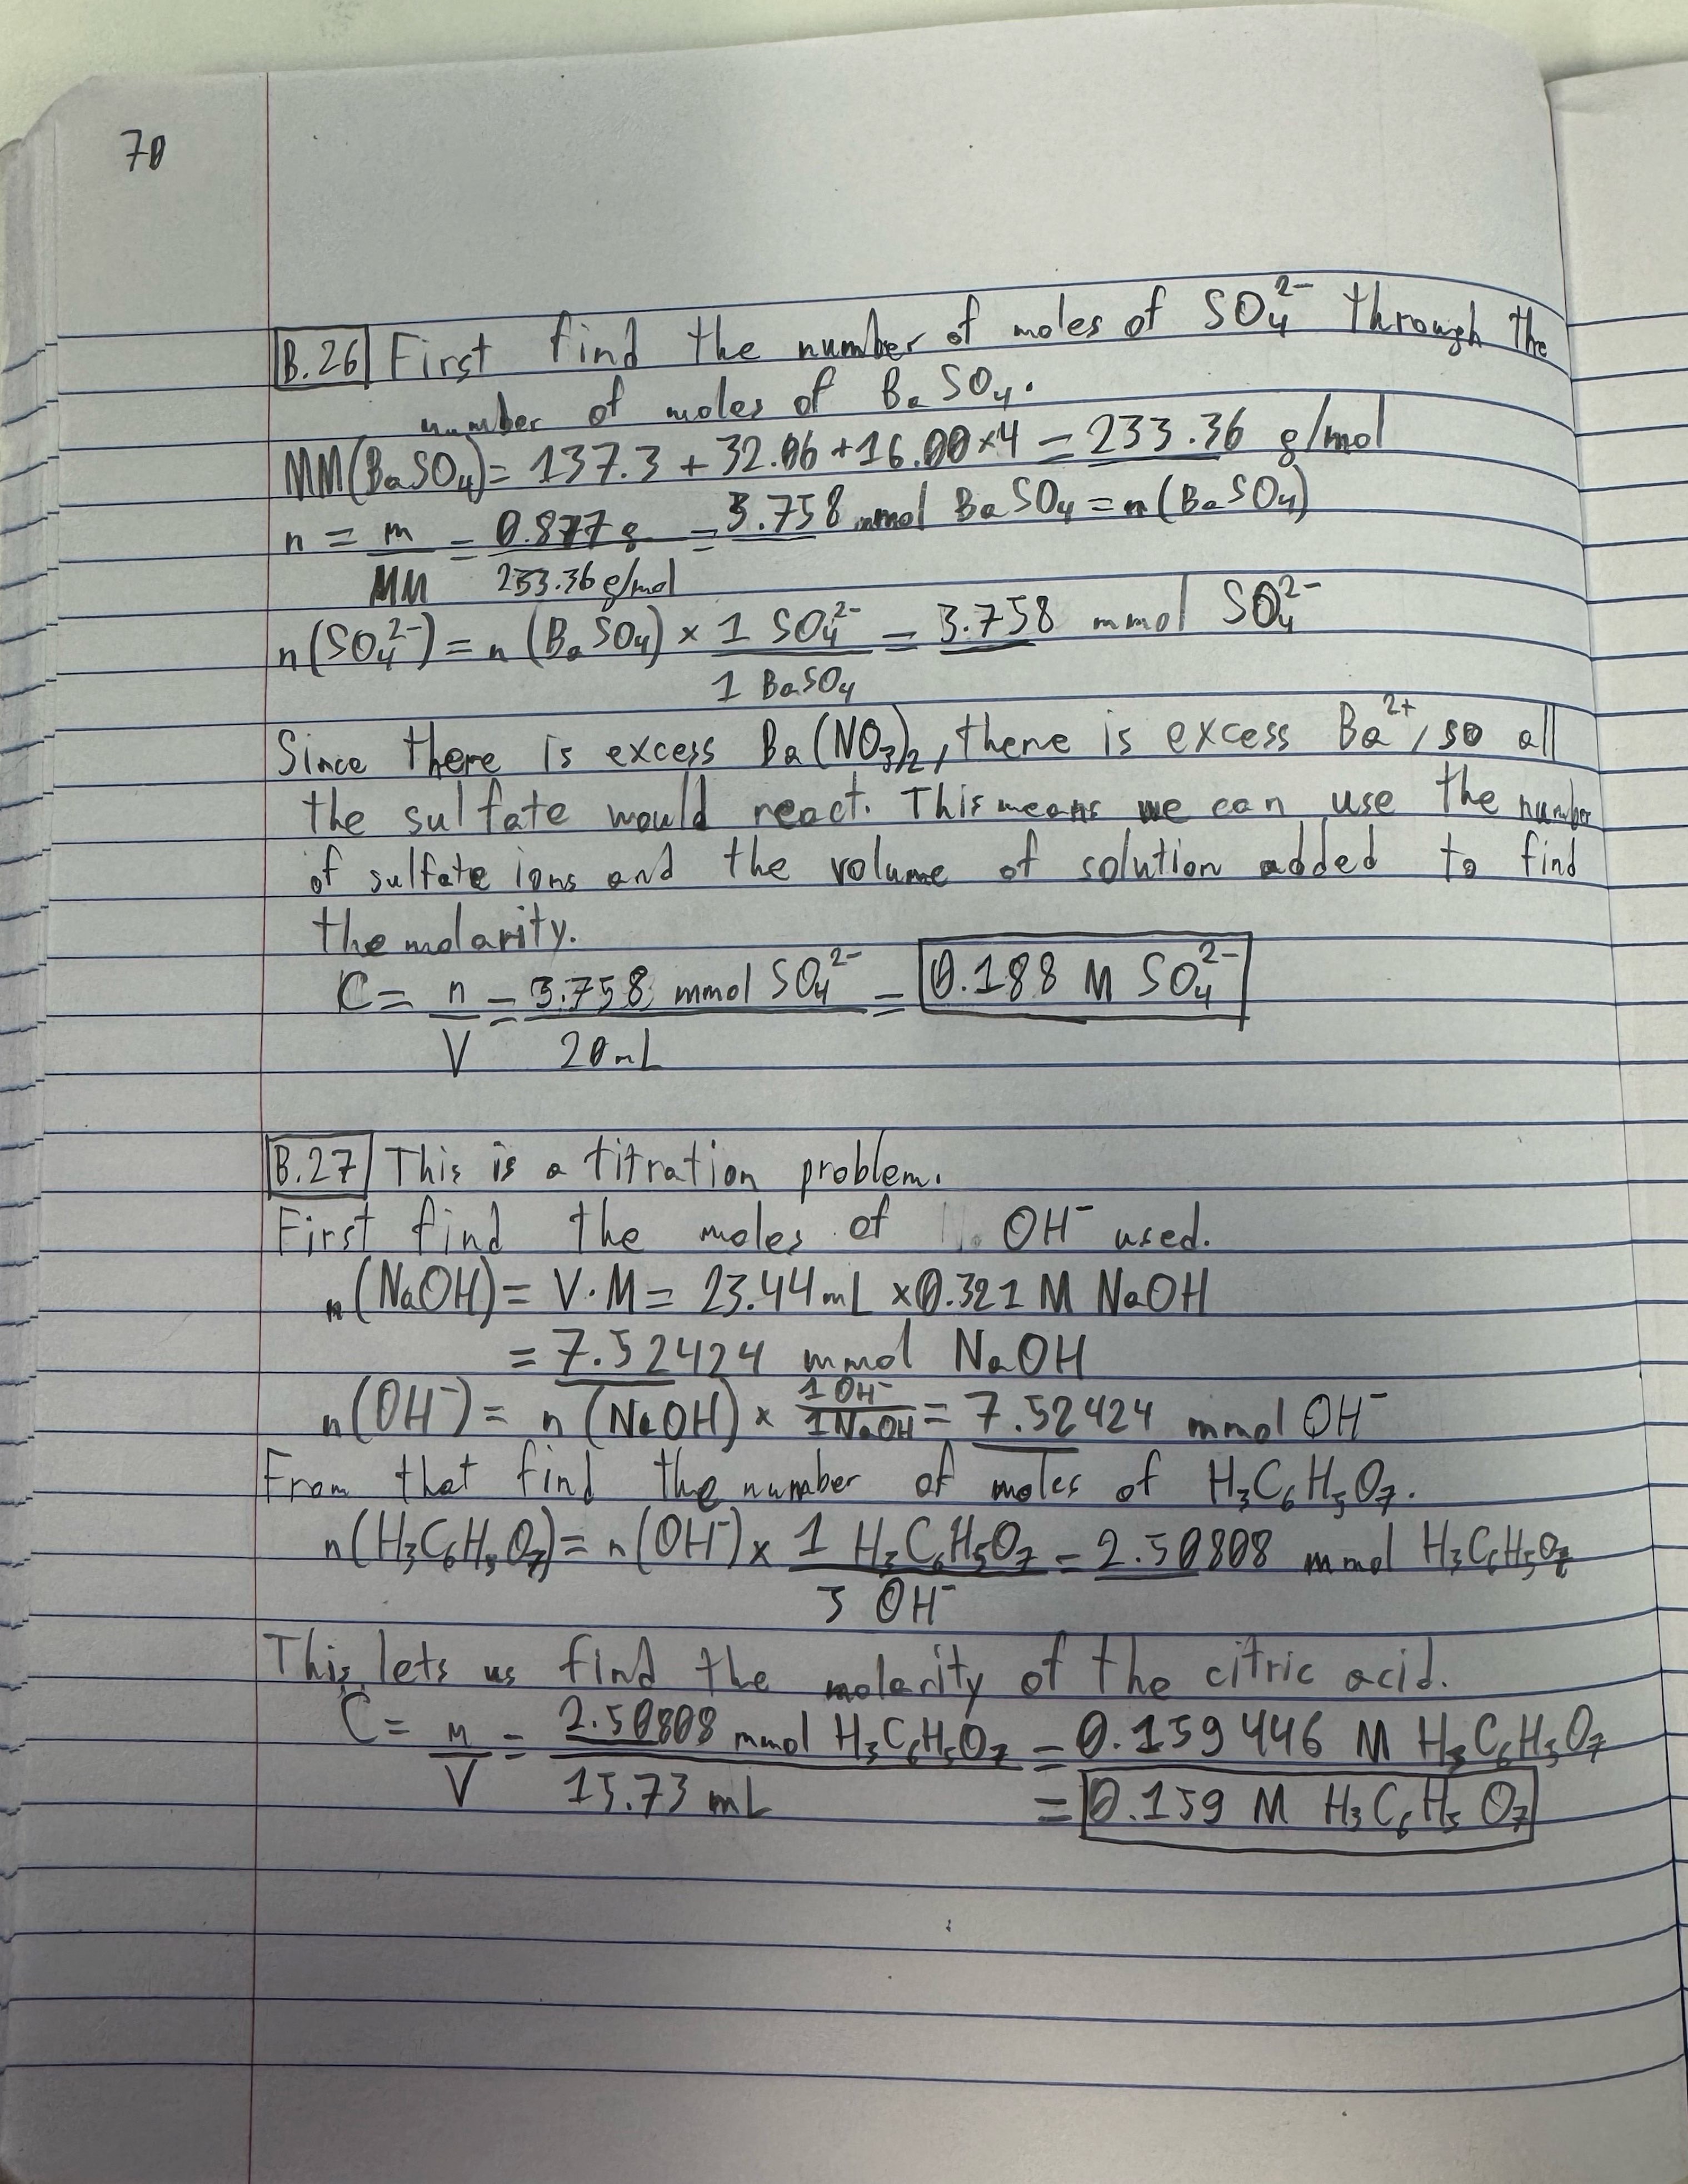 70
B.26 First find the number of moles of SO₄²⁻ through the
number of moles of BaSO₄.
MM(BaSO₄) = 137.3 + 32.06 + 16.00×4 = 233.36 g/mol
n = m/MM = 0.877 g/233.36 g/mol = 3.758 mmol BaSO₄ = n(BaSO₄)
n(SO₄²⁻) = n(BaSO₄) × 1 SO₄²⁻/1 BaSO₄ = 3.758 mmol SO₄²⁻
Since there is excess Ba(NO₃)₂, there is excess Ba²⁺, so all
the sulfate would react. This means we can use the number
of sulfate ions and the volume of solution added to find
the molarity.
C = n/V = 3.758 mmol SO₄²⁻/20 mL = 0.188 M SO₄²⁻
B.27 This is a titration problem.
First find the moles of OH⁻ used.
n(NaOH) = V·M = 23.44 mL × 0.321 M NaOH
= 7.52424 mmol NaOH
n(OH⁻) = n(NaOH) × 1 OH⁻/1 NaOH = 7.52424 mmol OH⁻
From that find the number of moles of H₃C₆H₅O₇.
n(H₃C₆H₅O₇) = n(OH⁻) × 1 H₃C₆H₅O₇/3 OH⁻ = 2.50808 mmol H₃C₆H₅O₇
This lets us find the molarity of the citric acid.
C = n/V = 2.50808 mmol H₃C₆H₅O₇/15.73 mL = 0.159446 M H₃C₆H₅O₇
= 0.159 M H₃C₆H₅O₇